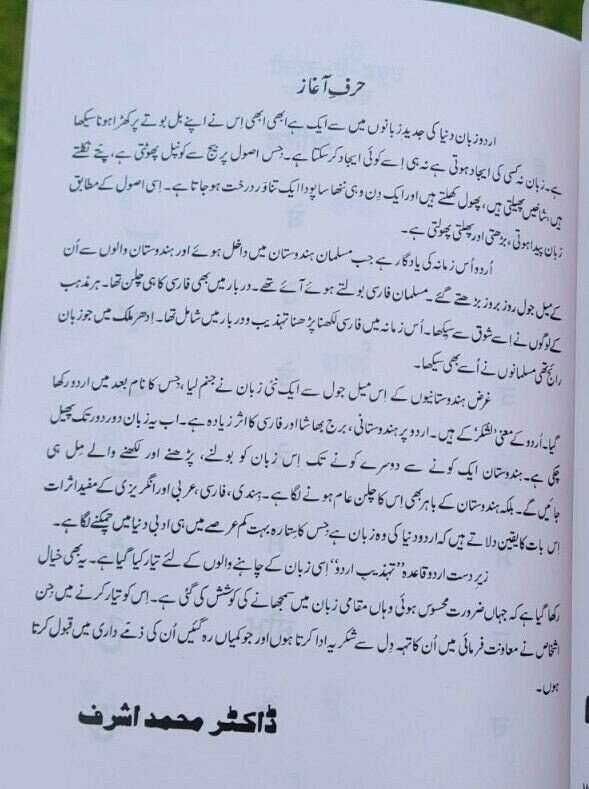 حرفِ آغاز
اردو زبان دنیا کی جدید زبانوں میں سے ایک ہے ابھی ابھی اِس نے اپنے بل بوتے پر کھڑا ہونا سیکھا
ہے۔ زبان نہ کسی کی ایجاد ہوتی ہے نہ ہی اِسے کوئی ایجاد کر سکتا ہے۔ جِس اصول پر بیج سے کونپل پھوٹتی ہے، پتے نکلتے
ہیں، شاخیں پھیلتی ہیں، پھول کھلتے ہیں اور ایک دِن وہی ننھا سا پودا ایک تناور درخت ہو جاتا ہے۔ اِسی اصول کے مطابق
زبان پیدا ہوتی، بڑھتی اور پھلتی پھولتی ہے۔
اُردو اُس زمانہ کی یادگار ہے جب مسلمان ہندوستان میں داخل ہوئے اور ہندوستان والوں سے اُن
کے میل جول روز بروز بڑھتے گئے۔ مسلمان فارسی بولتے ہوئے آئے تھے۔ دربار میں بھی فارسی کا ہی چلن تھا۔ ہر مذہب
کے لوگوں نے اِسے شوق سے سیکھا۔ اُس زمانہ میں فارسی لکھنا پڑھنا تہذیب و دربار میں شامل تھا۔ اِدھر ملک میں جو زبان
رائج تھی مسلمانوں نے اُسے بھی سیکھا۔
غرض ہندوستانیوں کے اِس میل جول سے ایک نئی زبان نے جنم لیا، جس کا نام بعد میں اردو رکھا
گیا۔ اُردو کے معنی ’لشکر‘ کے ہیں۔ اردو پر ہندوستانی، برج بھاشا اور فارسی کا اثر زیادہ ہے۔ اب یہ زبان دور دور تک پھیل
چکی ہے۔ ہندوستان ایک کونے سے دوسرے کونے تک اِس زبان کو بولنے، پڑھنے اور لکھنے والے مِل ہی
جائیں گے۔ بلکہ ہندوستان کے باہر بھی اِس کا چلن عام ہونے لگا ہے۔ ہِندی، فارسی، عربی اور انگریزی کے مفید اثرات
اِس بات کا یقین دلاتے ہیں کہ اردو دنیا کی وہ زبان ہے جِس کا ستارہ بہت کم عرصے میں ہی ادبی دنیا میں چمکنے لگا ہے۔
زیر دست اردو قاعدہ ’’تہذیب اردو‘‘ اِسی زبان کے چاہنے والوں کے لئے تیار کیا گیا ہے۔ یہ بھی خیال
رکھا گیا ہے کہ جہاں ضرورت محسوس ہوئی وہاں مقامی زبان میں سمجھانے کی کوشش کی گئی ہے۔ اِس کو تیار کرنے میں جِن
اشخاص نے معاونت فرمائی میں اُن کا تہہِ دِل سے شکریہ ادا کرتا ہوں اور جو کمیاں رہ گئیں اُن کی ذمے داری میں قبول کرتا
ہوں۔
ڈاکٹر محمد اشرف